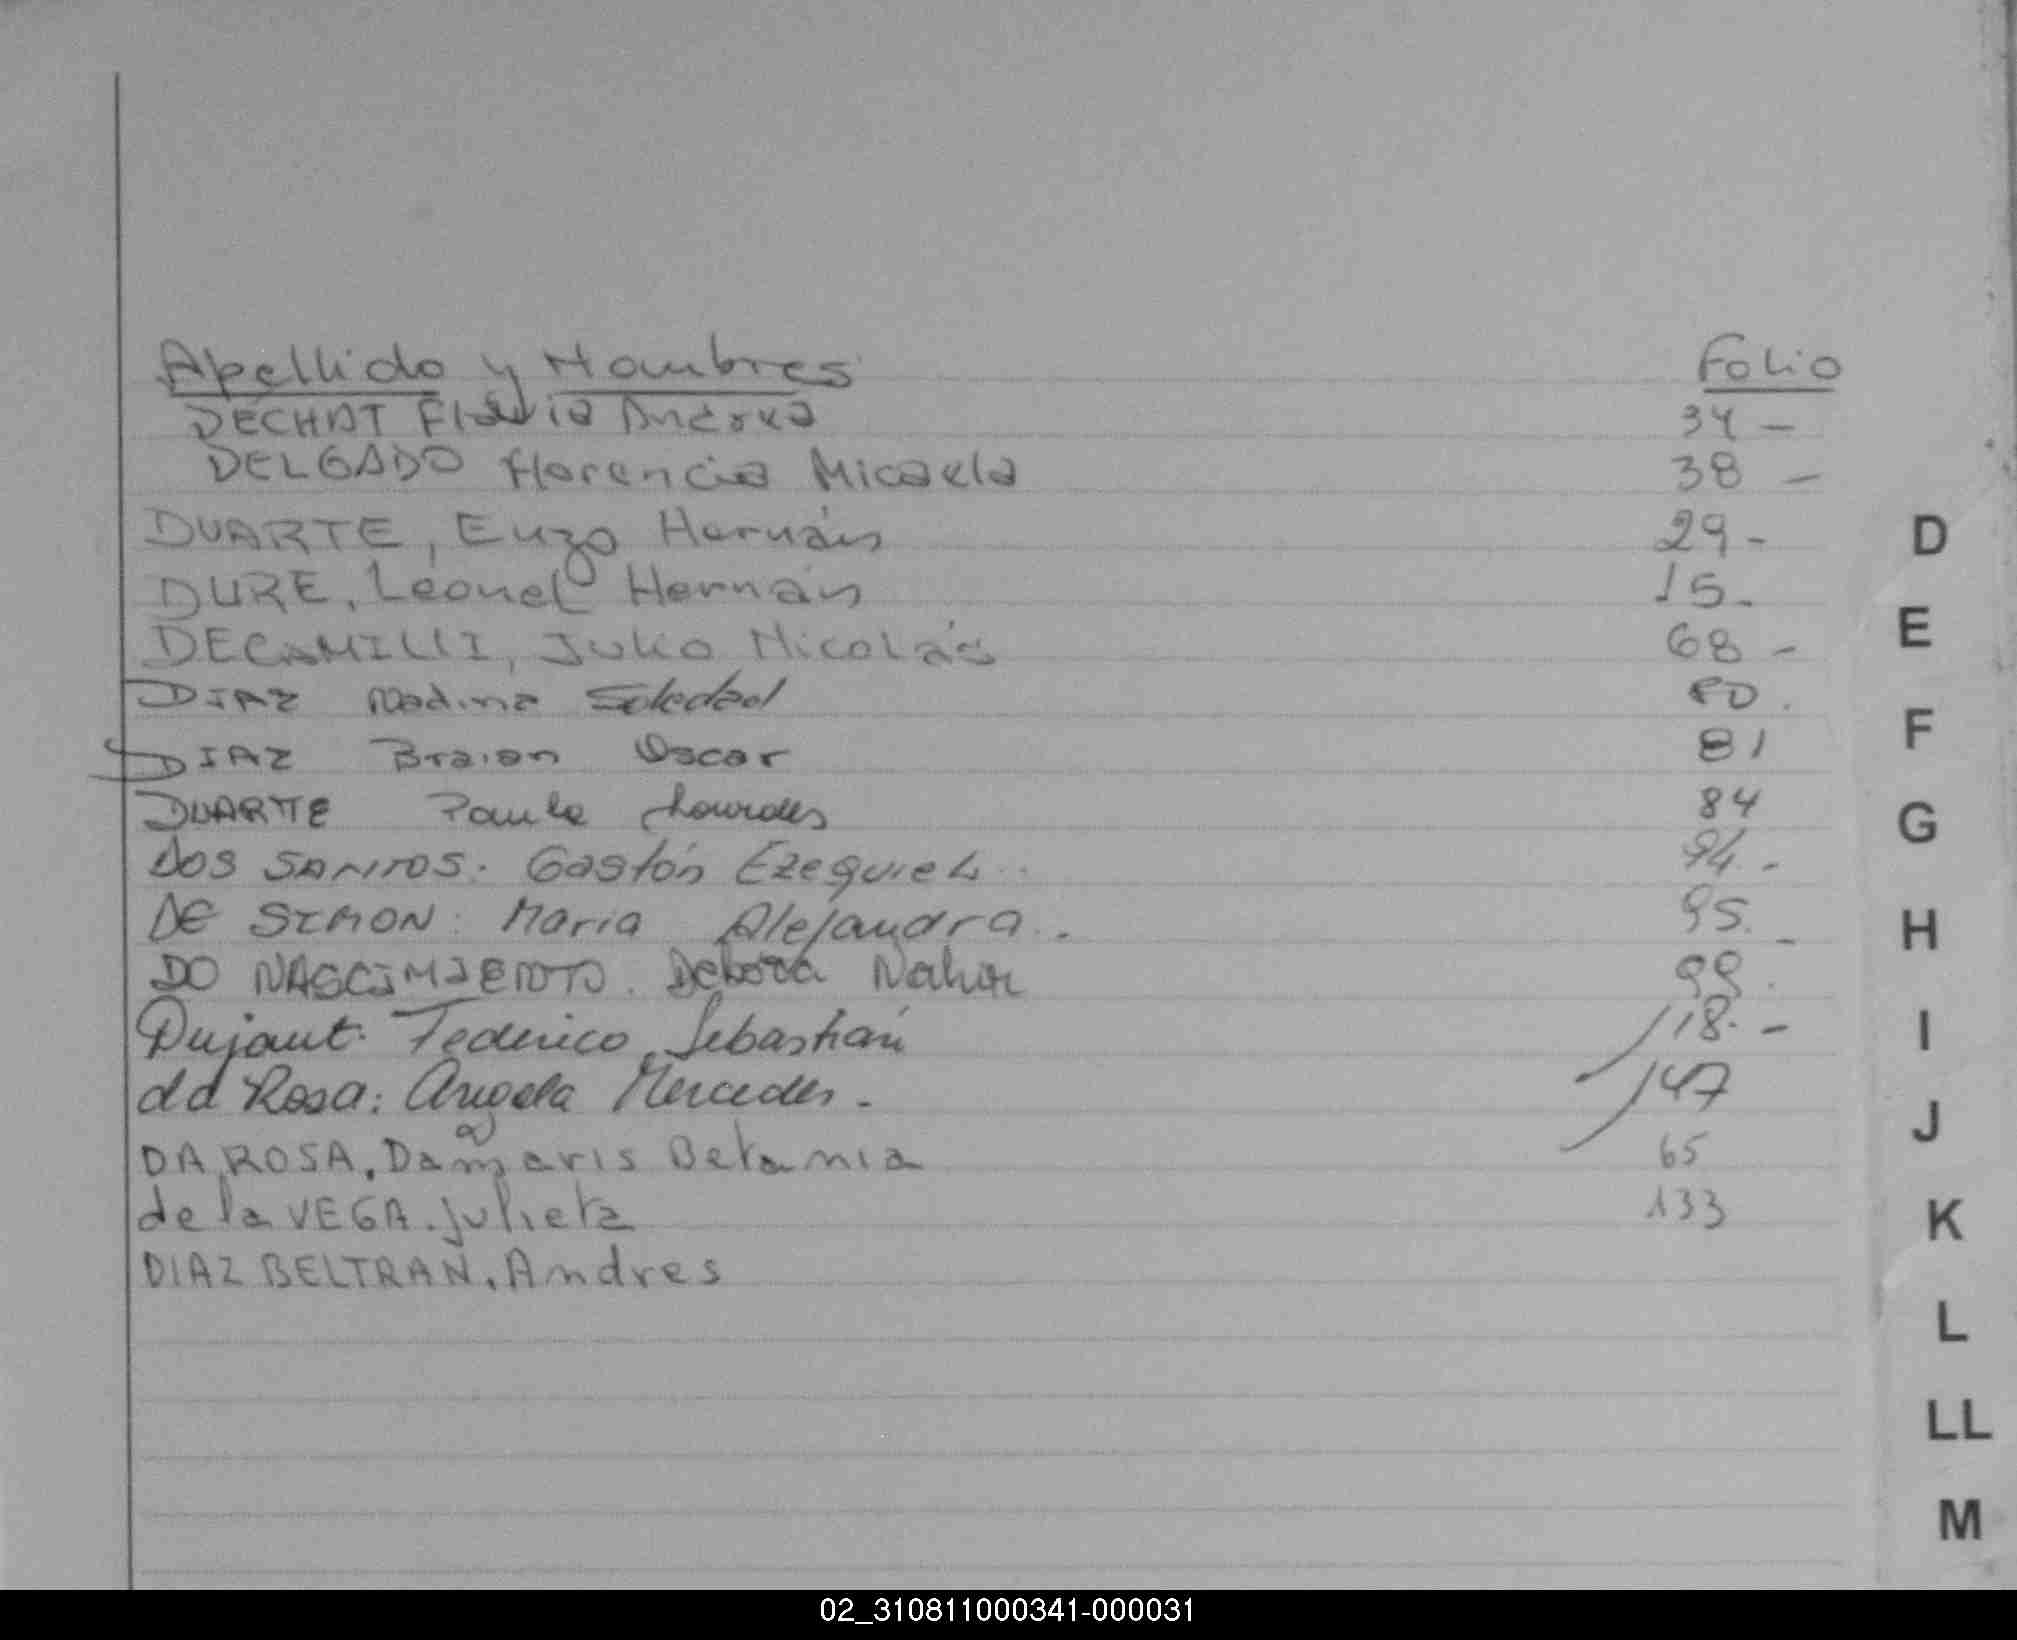 Apellido y Nombres Folio
DECHAT Flavia Andrea 34 -
DELGADO Florencia Micaela 38 -
DUARTE, Enzo Hernán 29 -
DURE, Leonel Hernán 15 -
DECAMILLI, Julio Nicolás 68 -
DIAZ Nadina Soledad 80 .
DIAZ Braian Oscar 81
DUARTE Paula Lourdes 84
DOS SANTOS. Gastón Ezequiel .. 94. -
DE SIMON. Maria Alejandra .. 95. -
DO NASCIMIENTO. Debora Nahir 99 .
Dujaut. Federico, Sebastián 118. -
Rosa: Angela Mercedes. - 147
DA ROSA, Damaris Betania 65
de la VEGA. Julieta 133
DIAZ BELTRAN, Andres
D
E
F
G
H
I
J
K
L
LL
M
02_310811000341-000031